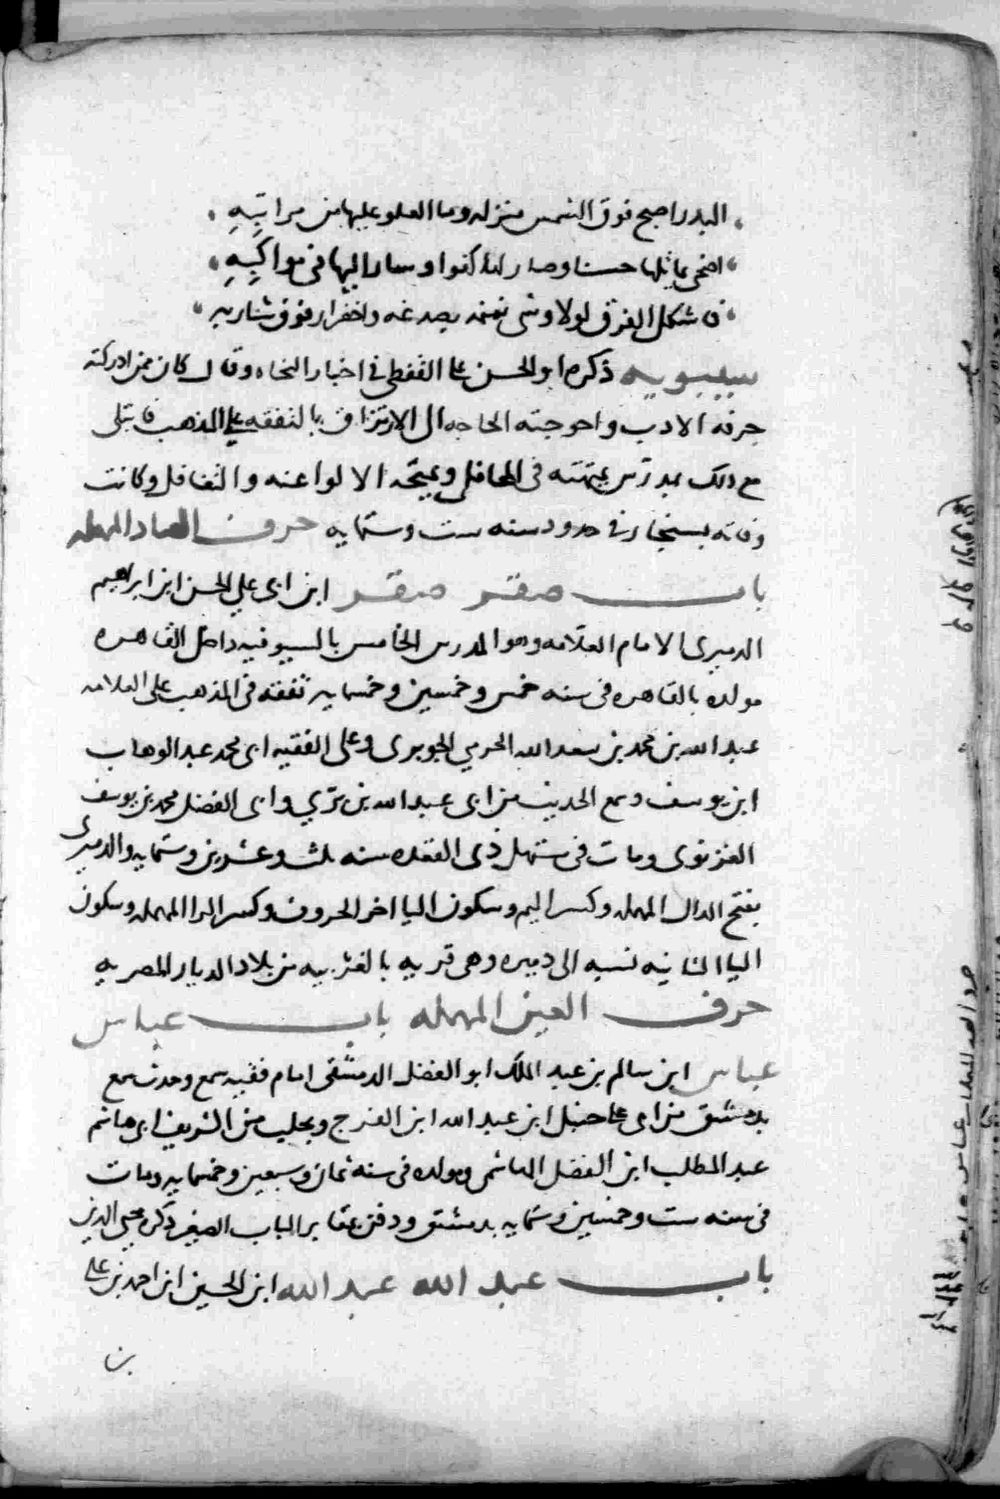 البدر اصبح فوق الشمس منزله وما العلو عليها من مراتبه
اضحى يماثلها حسنا وصار لها كفوا وسار اليها في مواكبه
فاشكل الفرق لولا وشى نمنمه بصدغه واخضرار فوق شاربه
سيبويه ذكره ابو الحسن على القفطى في اخبار النحاه وقال كان ممن ادركته
حرفه الادب واحوجته الحاجه الى الارتزاق بالتفقه على المذهب فابتلى
مع ذلك بمدرس يمتهنه في المحافل ويمنحه الالواعنه والتغافل وكانت
وفاته بسنجار في حدود سنه ست وستمايه حرف الصاد المهمله
باب صقر صقر ابن ابى علي الحسن ابن ابراهيم
الدميرى الامام العلامه وهو المدرس الخامس بالسيوفيه داخل القاهره
مولده بالقاهره في سنه خمس وخمسين وخمسمايه تفقه في المذهب على العلامه
عبد الله بن محمد بن سعد الله الحرمي الجويرى وعلى الفقيه ابى محمد عبد الوهاب
ابن يوسف وسمع الحديث من ابى عبد الله بن بري وابى الفضل محمد بن يوسف
الغزنوى ومات فى مستهل ذى القعده سنه ثلث وعشرين وستمايه والدميرى
بفتح الدال المهمله وكسر الميم وسكون اليا اخر الحروف وكسر الرا المهمله وسكون
اليا الثانيه نسبه الى دميره وهى قريه بالغربيه من بلاد الديار المصريه
حرف العين المهمله باب عباس
عباس ابن سالم بن عبد الملك ابو الفضل الدمشقى امام فقيه سمع وحدث سمع
بدمشق من ابى على حنبل ابن عبد الله ابن الفرج وبحلب من الشريف ابى هاشم
عبد المطلب ابن الفضل الهاشمى ومولده فى سنه ثمان وسبعين وخمسمايه ومات
فى سنه ست وخمسين وستمايه بدمشق ودفن بمقابر الباب الصغير ذكره محيى الدين
باب عبد الله عبد الله ابن الحسين ابن احمد بن على
بن